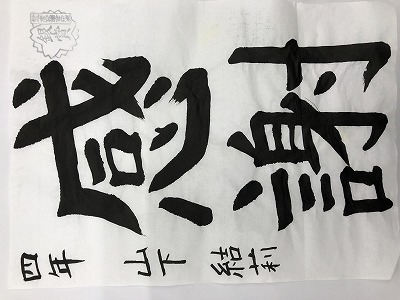 感謝
四年 山下 結莉